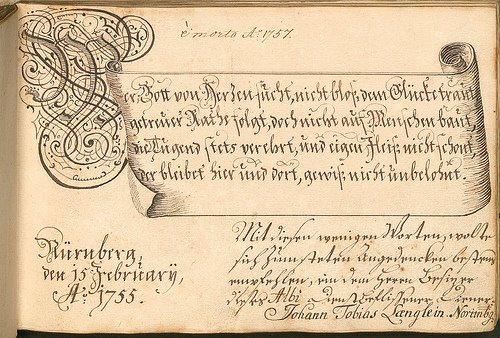 è morto Aº. 1757.
Wer Gott von Herzen sucht, nicht bloß dem Glücke traut,
getreuen Rath folgt, doch nicht auf Menschen baut,
die Tugend stets verehrt, und eigen Fleiß nicht schont,
der bleibet hier und dort, gewiß nicht unbelohnt.
Nürnberg,
den 15 February,
Aº. 1755.
Mit diesen wenigen Worten, wolte
sich zum steten Angedencken bestens
empfehlen, dem Herrn Besizer
dieses Albi Diener
Johann Tobias Længlein. Norimbg.